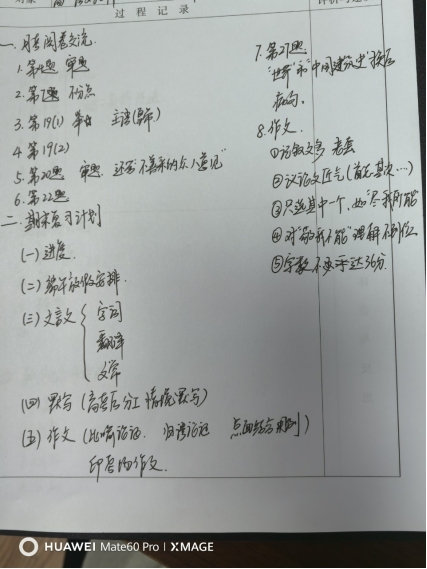 过程记录
一.月考阅卷交流.
1.第4题 审题
2.第7题 不分点
3.第19(1) 主语(句)
4 第19(2)
5.第20题 审题 还答"不
6.第22题
二.期末复习计划
(一)进度.
(二)端午放假安排.
(三)文言文 字词
翻译
文学
(四)默写(高三分工 情境默写)
(五)作文(比喻论证. 归谬论证 点面结合原则)
印 作文.
7.第21题
"世界"和"中国建筑史"
在内.
8.作文
①记叙文多 老套
②议论文匠气(首先其次…)
③只选其中一个,如"尽我所能"
④对"我不能"理解不到位
⑤字数不 36分.
HUAWEI Mate60 Pro | XMAGE